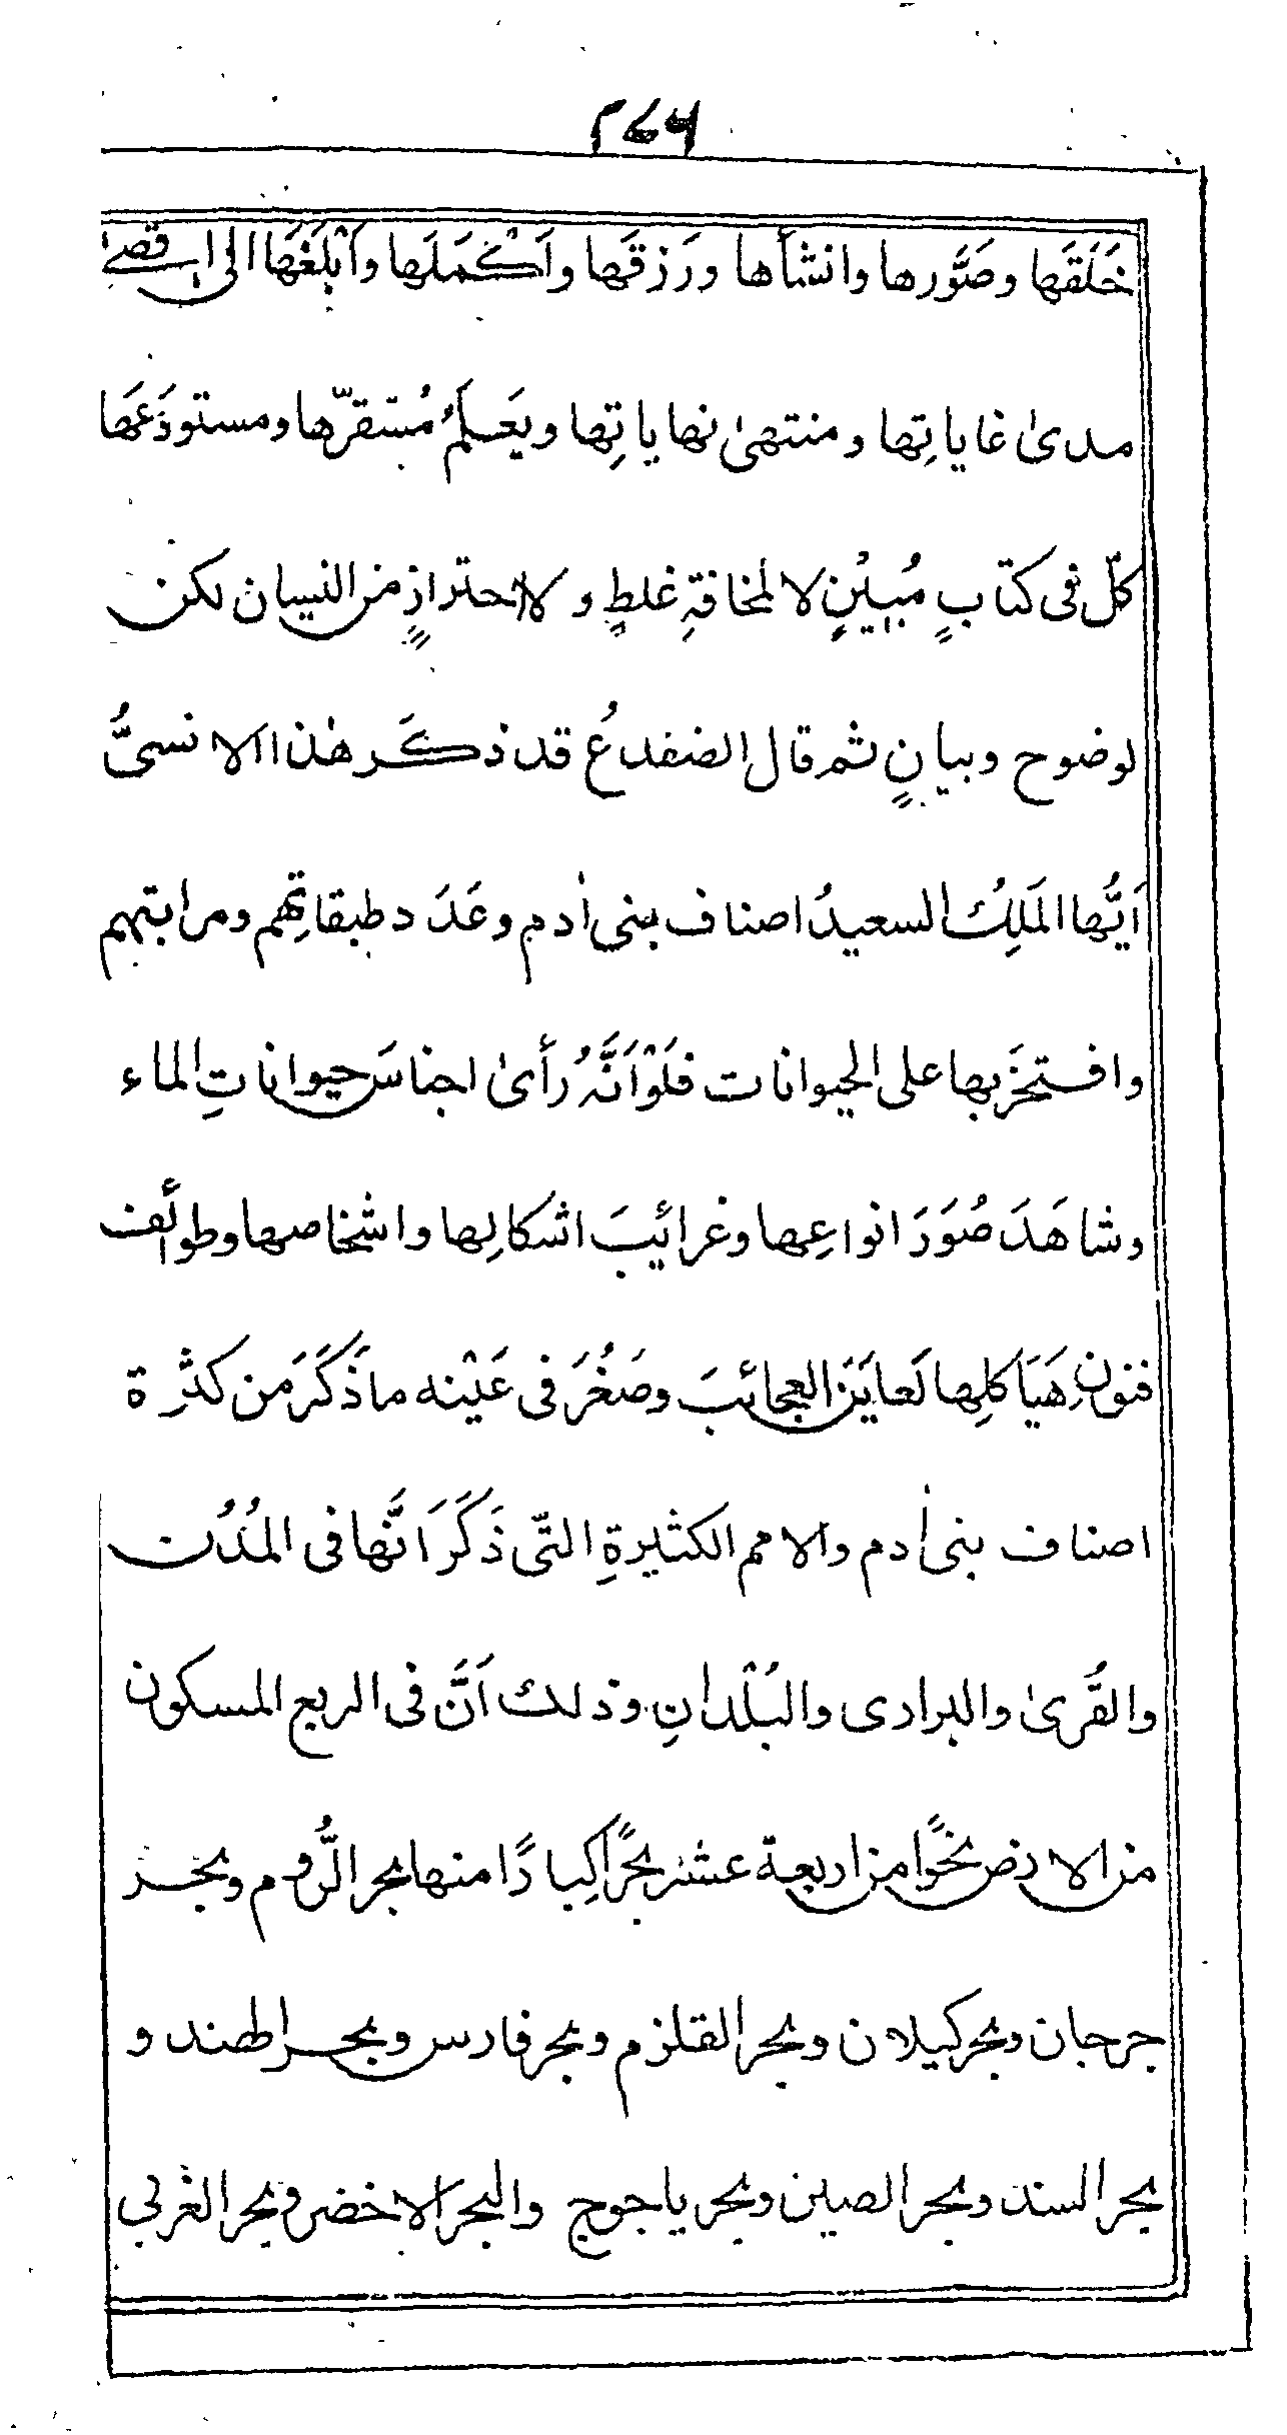 ۲۷۶
خَلَقَها وصَوَّرها وانشأها ورَزقَها واَكْمَلَها واَبْلَغَها الى اقصىٰ
مدىٰ غاياتِها ومنتهىٰ نهاياتِها ويَعلَمُ مُستقرّها ومستودَعَها
كلّ فى كتابٍ مُبينٍ لا لمخافةِ غلطٍ ولا احترازٍ من النسيان لكن
لوضوح وبيانٍ ثم قال الضفدعُ قد ذكَر هٰذا الانسىُّ
اَيُّها المَلِكُ السعيدُ اصناف بني اٰدم وعَدَد طبقاتِهم ومراتبهم
وافتخَر بها على الحيوانات فلَوْ اَنَّهُ رأىٰ اجناسَ حيواناتِ الماء
وشاهَدَ صُوَرَ انواعِها وغرائبَ اشكالِها واشخاصها وطوائف
فنونِ هَيَاكلِها لَعايَنَ العجائبَ وصَغُرَ فى عَيْنه ما ذَكَرَ من كثرة
اصناف بنى اٰدم والامم الكثيرةِ التّى ذَكَرَ انَّها فى المُدُن
والقُرىٰ والبرارى والبُلْدانِ وذلك اَنَّ فى الربع المسكون
من الارض نحوًا من اربعة عشر بحرًا كِبارًا منها بحر الرُّوم وبحر
جرجان وبحر كيلان وبحر القلزم وبحر فارس وبحر الهند و
بحر السند وبحر الصين وبحر ياجوج والبحر الاخضر وبحر الغربى